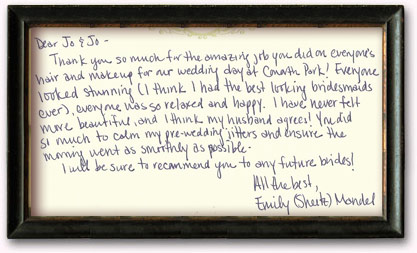 Dear Jo & Jo -
Thank you so much for the amazing job you did on everyone's
hair and makeup for our wedding day at Park! Everyone
looked stunning (I think I had the best looking bridesmaids
ever), everyone was so relaxed and happy. I have never felt
more beautiful, and I think my husband agrees! You did
so much to calm my pre-wedding jitters and ensure the
morning went as smoothly as possible.
I will be sure to recommend you to any future brides!
All the best,
Emily (Sheetz) Mandel